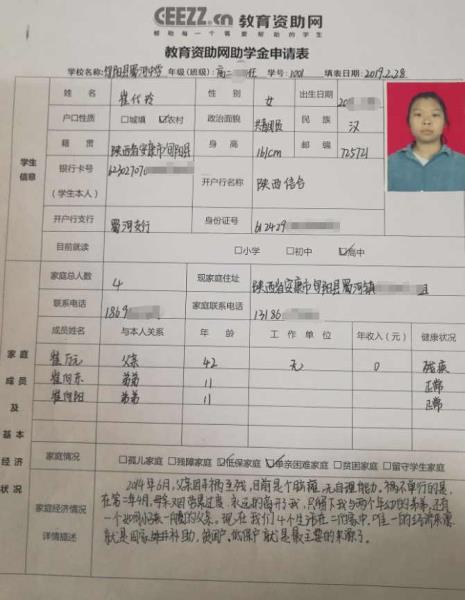 CEEZZ.cn 教育资助网
帮助每一个需要帮助的学生
教育资助网助学金申请表
学校名称: 旬阳县蜀河中学 年级(班级): 高二 学号: 1001 填表日期: 2019.2.28
姓名 崔代玲 性别 女 出生日期 20
户口性质 □城镇 ☑农村 政治面貌 共青团员 民族 汉
籍贯 陕西省安康市旬阳县 身高 161cm 邮编 725721
学生信息
银行卡号(学生本人) 623027070 开户行名称 陕西信合
开户行支行 蜀河支行 身份证号 612429
目前就读 □小学 □初中 ☑高中
家庭总人数 4 现家庭住址 陕西省安康市旬阳县蜀河镇 组
联系电话 1869 家庭联系电话 13186
成员姓名 与本人关系 年龄 工作单位 年收入(元) 健康状况
崔万元 父亲 42 无 0 残疾
崔向东 弟弟 11 正常
崔向阳 弟弟 11 正常
家庭成员及基本经济状况
家庭情况 □孤儿家庭 □残障家庭 ☑低保家庭 ☑单亲困难家庭 □贫困家庭 □留守学生家庭
家庭经济情况详情描述
2014年6月,父亲因车祸至残,目前是个脑瘫,无自理能力。祸不单行的是,
在第二年4月,母亲又因劳累过度,永远的离开了我,只留下我与两个年幼的弟弟,还有
一个如同小孩一般的父亲。现在我们4个生活在二伯家中,唯一的经济来源
就是国家每月补助,贫困户,低保户就是最主要的来源了。